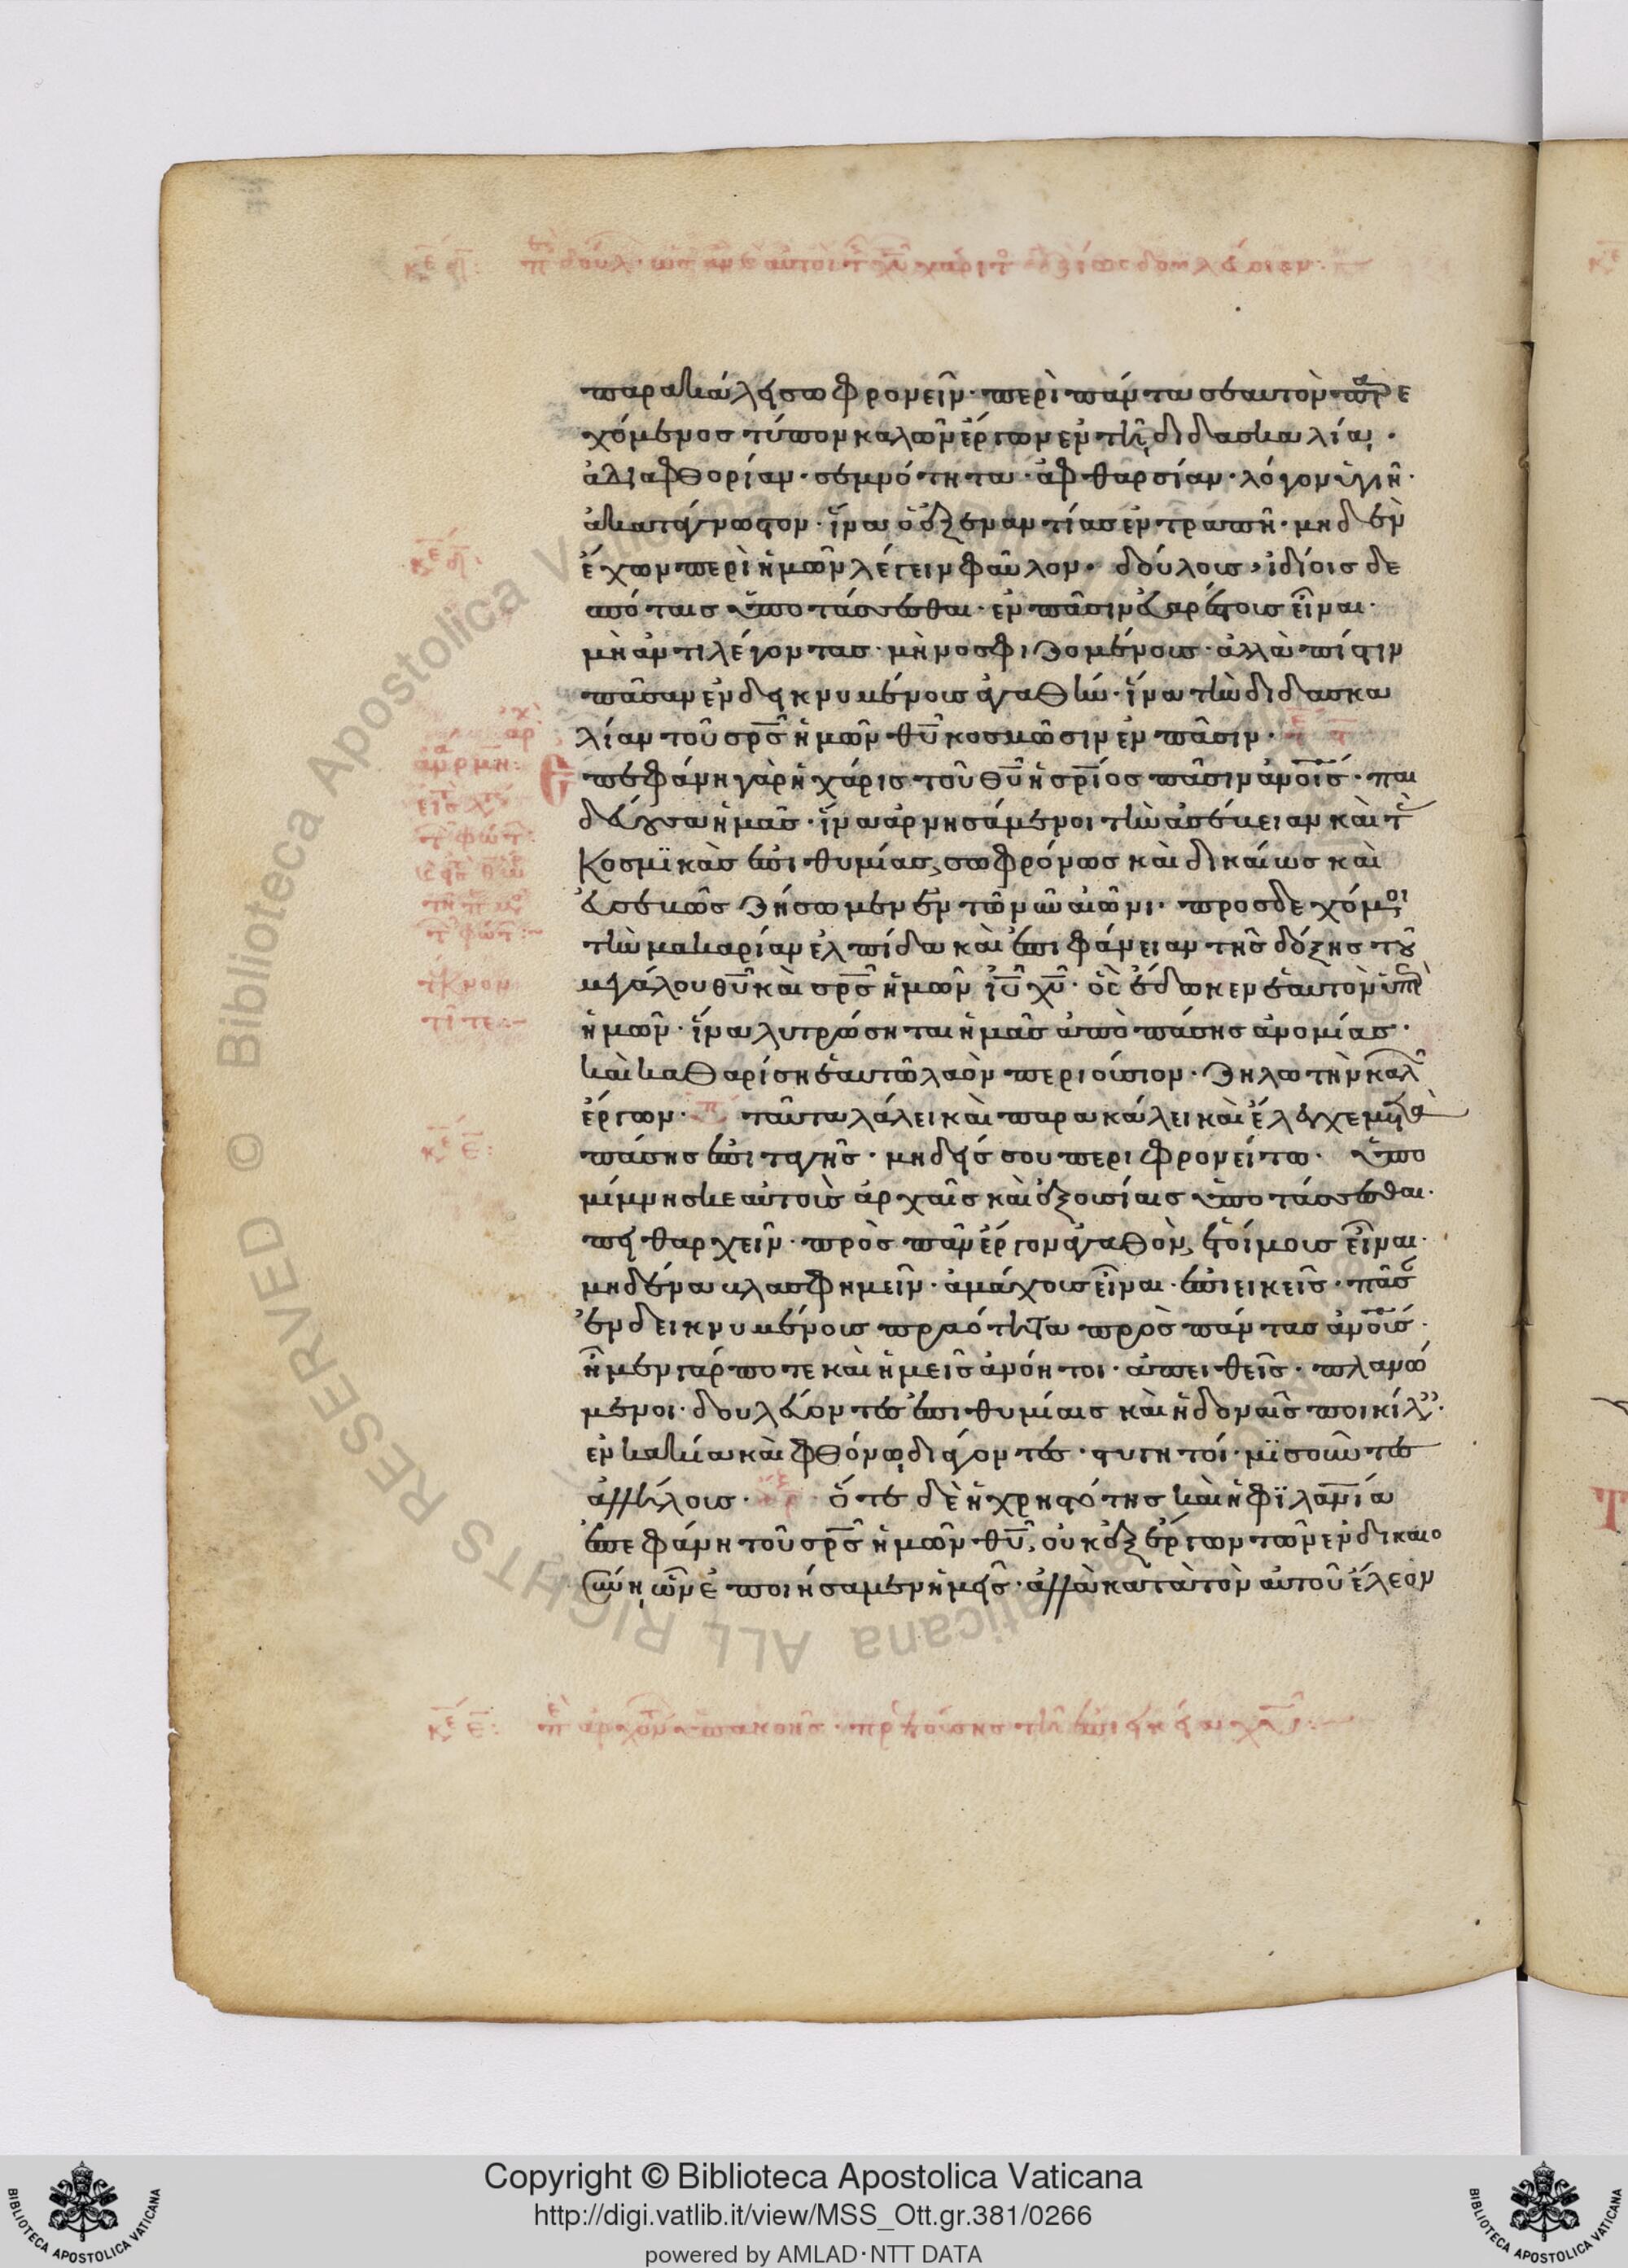 παρακάλει σωφρονεῖν· περὶ πάντα σεαυτὸν παρε
χόμενος τύπον καλῶν ἔργων ἐν τῆ διδασκαλία·
ἀδιαφθορίαν· σεμνότητα· ἀφθαρσίαν· λόγον ὑγιῆ·
ἀκατάγνωστον· ἵνα ὁ ἐξ ἐναντίας ἐντραπῆ· μηδὲν
ἔχων περὶ ἡμῶν λέγειν φαῦλον· δούλους ἰδίοις δε
σπόταις ὑποτάσσεσθαι· ἐν πᾶσιν εὐαρέστους εἶναι·
μὴ ἀντιλέγοντας· μὴ νοσφιζομένους· ἀλλὰ πίστιν
πᾶσαν ἐνδεικνυμένους ἀγαθήν· ἵνα τὴν διδασκα
λίαν τοῦ σρ̅ς ἡμῶν θυ̅ κοσμῶσιν ἐν πᾶσιν·
Ἐπεφάνη γὰρ ἡ χάρις τοῦ θυ̅ ἡ σρ̅ιος πᾶσιν ἀνο̅ις· παι
δεύουσα ἡμᾶς· ἵνα ἀρνησάμενοι τὴν ἀσέβειαν καὶ τ
κοσμϊκὰς ἐπιθυμίας, σωφρόνως καὶ δικαίως καὶ
εὐσεβῶς ζήσωμεν ἐν τῶ νῦν αἰῶνι· προσδεχόμοι
τὴν μακαρίαν ἐλπίδα καὶ ἐπιφάνειαν τῆς δόξης τοῦ
μεγάλου θυ̅ καὶ σρ̅ς ἡμῶν ιυ̅ χυ̅· ὃς ἔδωκεν ἑαυτὸν ὑπ
ἡμῶν· ἵνα λυτρώσηται ἡμᾶς ἀπὸ πάσης ἀνομίας·
καὶ καθαρίση ἑαυτῶ λαὸν περιούσιον· ζηλωτὴν καλ
ἔργων· ταῦτα λάλει καὶ παρακάλει καὶ ἔλεγχε μετὰ
πάσης ἐπιταγῆς· μηδείς σου περιφρονείτω· ὑπο
μίμνησκε αὐτοὺς ἀρχαῖς καὶ ἐξουσίαις ὑποτάσσεσθαι·
πειθαρχεῖν· πρὸς πᾶν ἔργον ἀγαθὸν, ἑτοίμους εἶναι·
μηδένα βλασφημεῖν· ἀμάχους εἶναι· ἐπιεικεῖς· πᾶσ
ἐνδεικνυμένους πραότητα πρὸς πάντας ἀνο̅υς·
ἦμεν γάρ ποτε καὶ ἡμεῖς ἀνόητοι· ἀπειθεῖς· πλανώ
μενοι· δουλεύοντες ἐπιθυμίαις καὶ ἡδοναῖς ποικίλ·
ἐν κακία καὶ φθόνω διάγοντες· στυγητοί· μϊσοῦντες
ἀλλήλους· ὅτε δὲ ἡ χρηστότης καὶ ἡ φϊλαν̅ια
ἐπεφάνη τοῦ σρ̅ς ἡμῶν θυ̅, οὐκ ἐξ ἔργων τῶν ἐν δικαιο
σύνη ὧν ἐποιήσαμεν ἡμεῖς· ἀλλὰ κατὰ τὸν αὐτοῦ ἔλεον
Copyright © Biblioteca Apostolica Vaticana
http://digi.vatlib.it/view/MSS_Ott.gr.381/0266
powered by AMLAD·NTT DATA